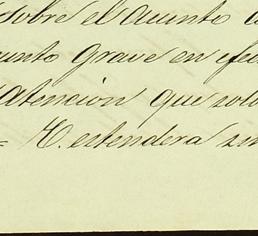 sobre el Asunto
unto grave en efec
Atencion que solo
= V. estendera sin